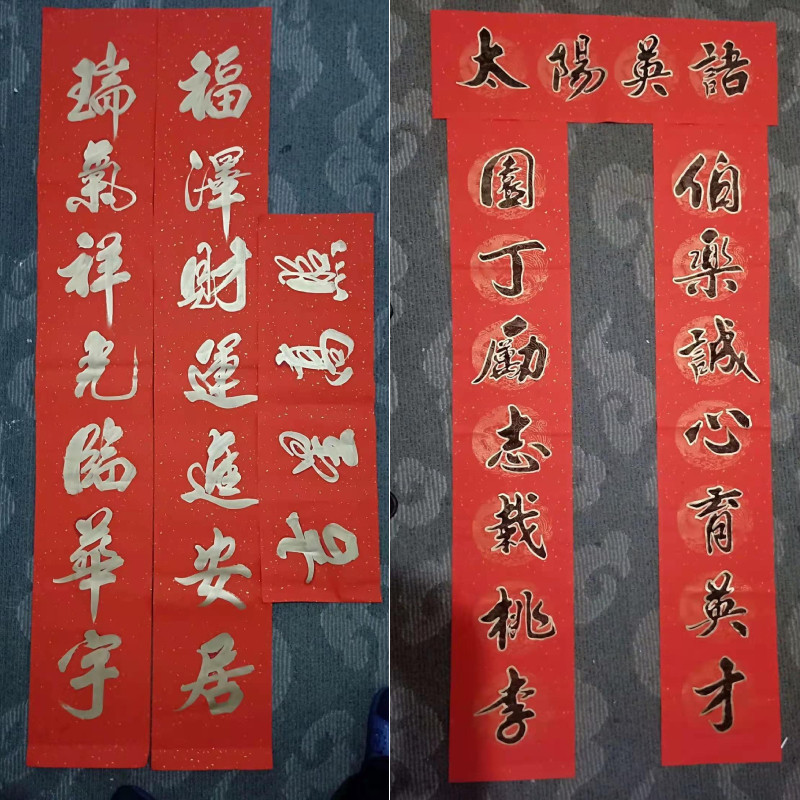 瑞氣祥光臨華宇
福澤財運進安居
吉星高照
太陽英語
園丁勵志栽桃李
伯樂誠心育英才